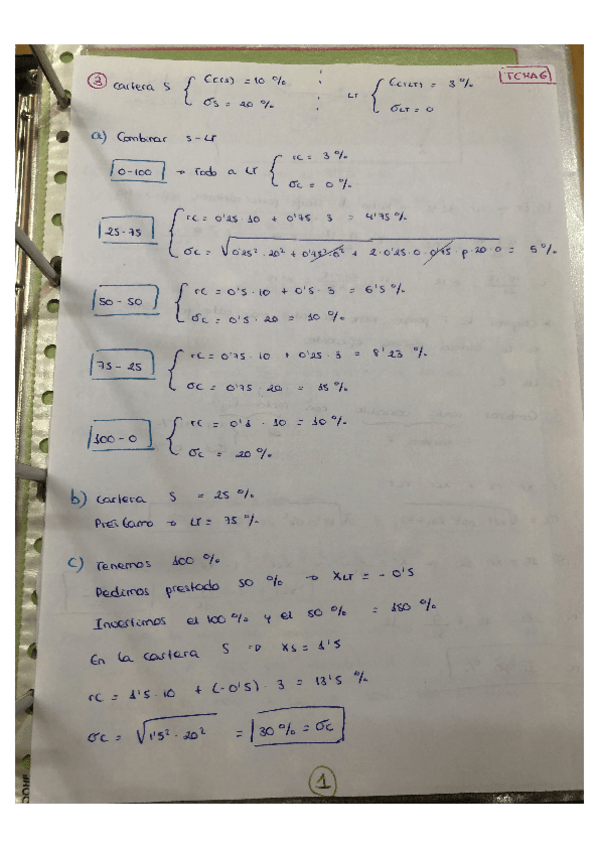 TCHA6
③ Cartera S { E(S) = 10 % LT { E(LT) = 3 %
σS = 20 % σLT = 0
a) Combinar S-LT
0-100 → Todo a LT { rC = 3 %
σC = 0 %
25-75 { rC = 0'25 · 10 + 0'75 · 3 = 4'75 %
σC = √0'25² · 20² + 0'75² · 0² + 2 · 0'25 · 0 · 0'75 · ρ · 20 · 0 = 5 %
50 - 50 { rC = 0'5 · 10 + 0'5 · 3 = 6'5 %
σC = 0'5 · 20 = 10 %
75 - 25 { rC = 0'75 · 10 + 0'25 · 3 = 8'23 %
σC = 0'75 · 20 = 15 %
100 - 0 { rC = 0'1 · 10 = 10 %
σC = 20 %
b) Cartera S = 25 %
Préstamo → LT = 75 %
c) Tenemos 100 %
Pedimos prestado 50 % → XLT = - 0'5
Invertimos el 100 % y el 50 % = 150 %
En la cartera S → XS = 1'5
rC = 1'5 · 10 + (-0'5) · 3 = 13'5 %
σC = √1'5² · 20² = 30 % = σC
1